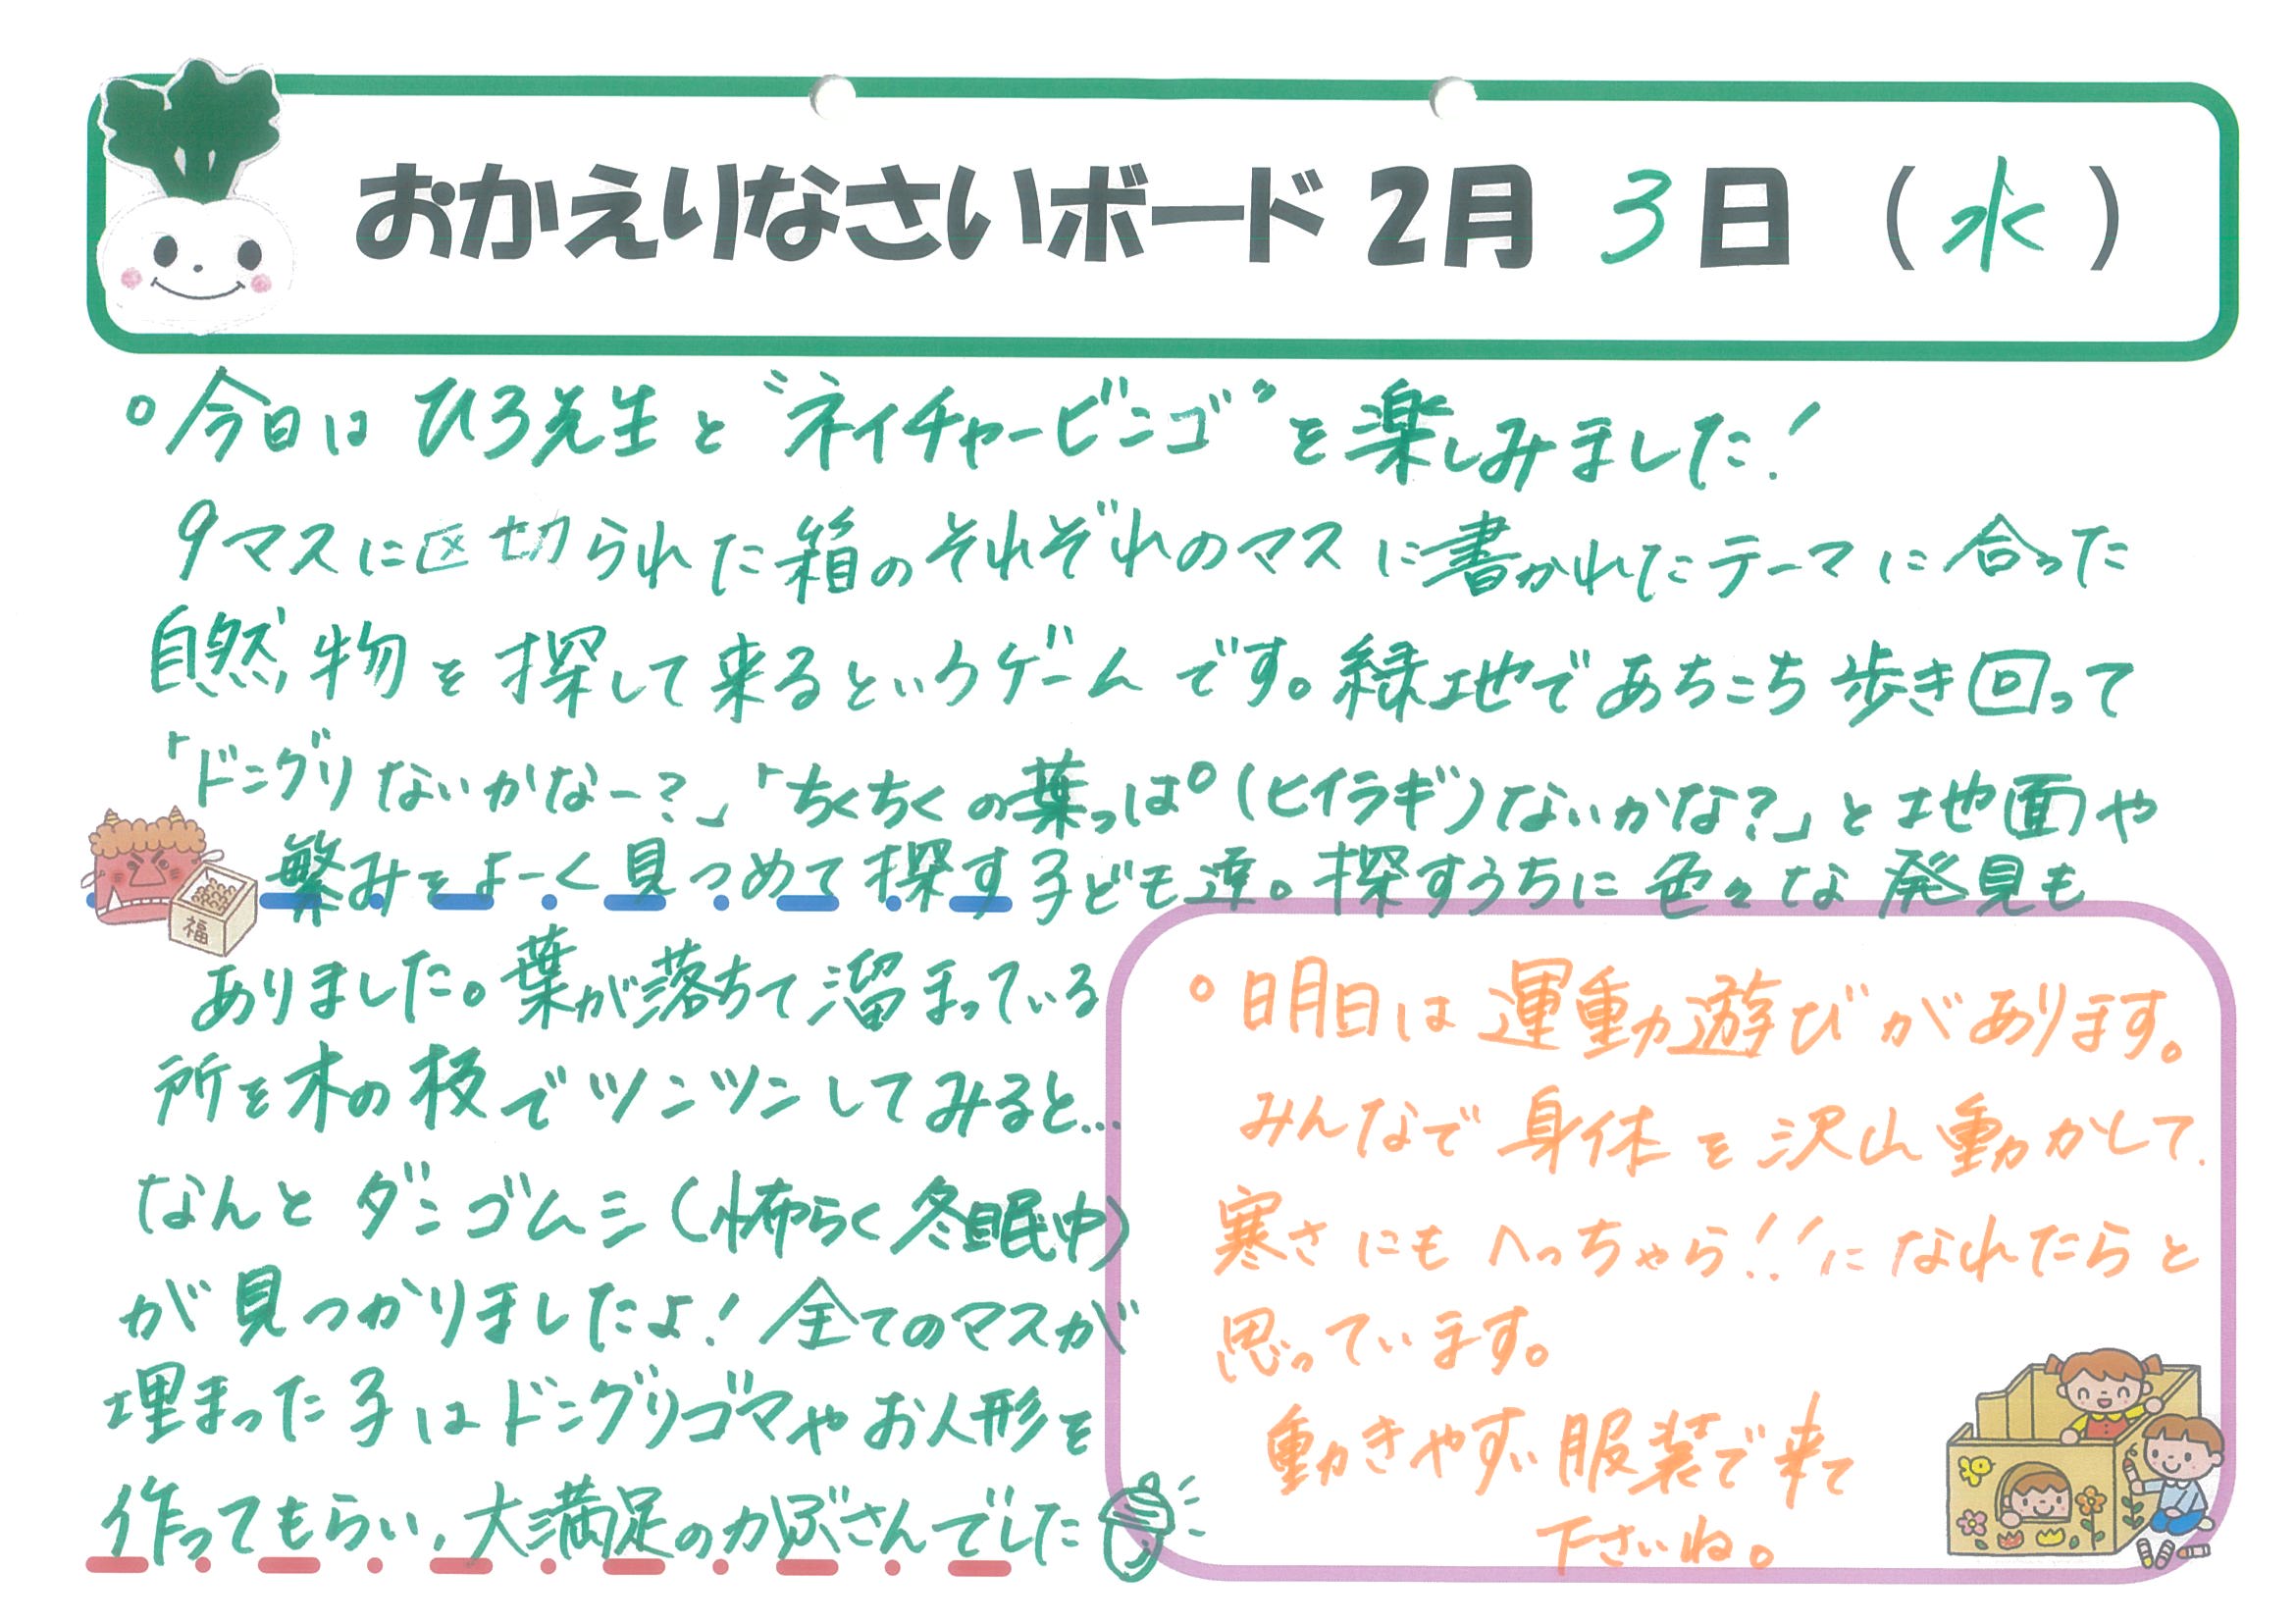 おかえりなさいボード 2月 3日 (水)
○今日は ひろ先生と〝ネイチャービンゴ〟を楽しみました!
9マスに区切られた箱のそれぞれのマスに書かれたテーマに合った
自然物を探して来るというゲームです。緑地であちこち歩き回って
「ドングリないかなー?」「ちくちくの葉っぱ(ヒイラギ)ないかな?」と地面や
繁みをよーく見つめて探す子ども達。探すうちに色々な発見も
ありました。葉が落ちて溜まっている
所を木の枝でツンツンしてみると...
なんと ダンゴムシ(怖らく冬眠中)
が見つかりましたよ!全てのマスが
埋まった子はドングリゴマやお人形を
作ってもらい、大満足のかぶさんでした
福
○明日は運動遊びがあります。
みんなで身体を沢山動かして、
寒さにもへっちゃら!!になれたらと
思っています。
動きやすい服装で来て
下さいね。